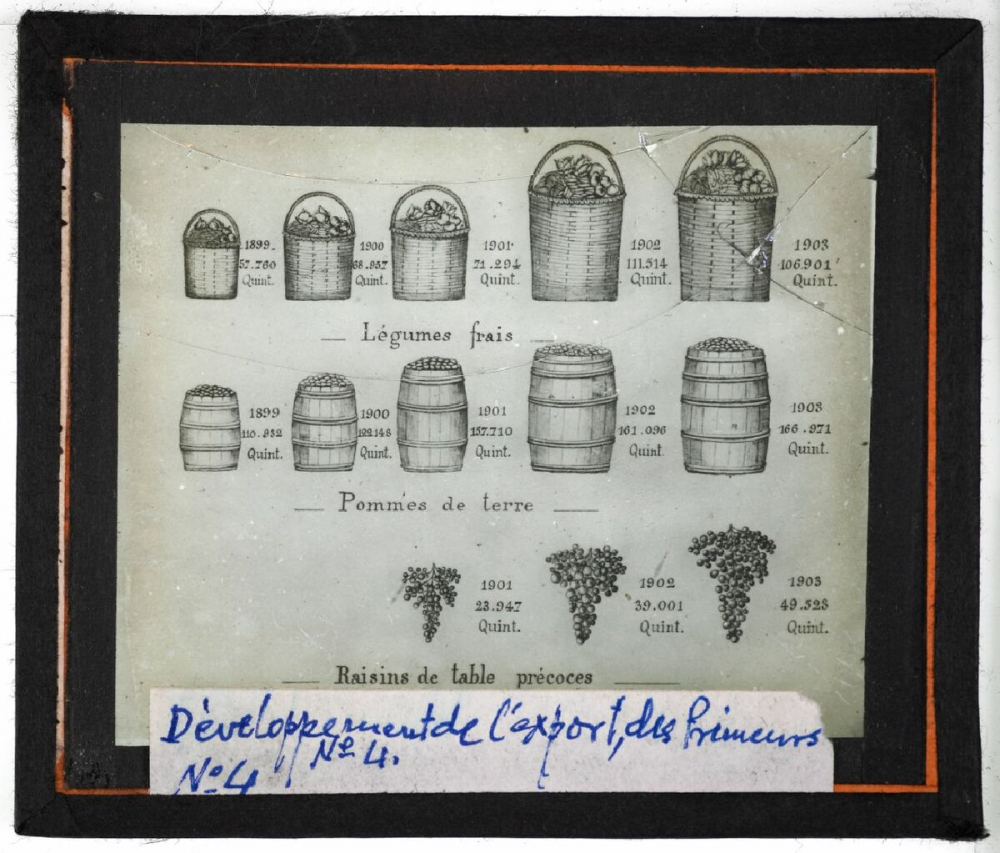 1899. 1900 1901 1902 1903
57.760 68.937 71.294 111.514 106.901
Quint. Quint. Quint. Quint. Quint.
— Légumes frais —
1899 1900 1901 1902 1903
110.932 122.148 157.710 161.096 166.971
Quint. Quint. Quint. Quint. Quint.
— Pommes de terre —
1901 1902 1903
23.947 39.001 49.523
Quint. Quint. Quint.
— Raisins de table précoces —
Développement de l'export, des Primeurs
Nº 4.
Nº 4